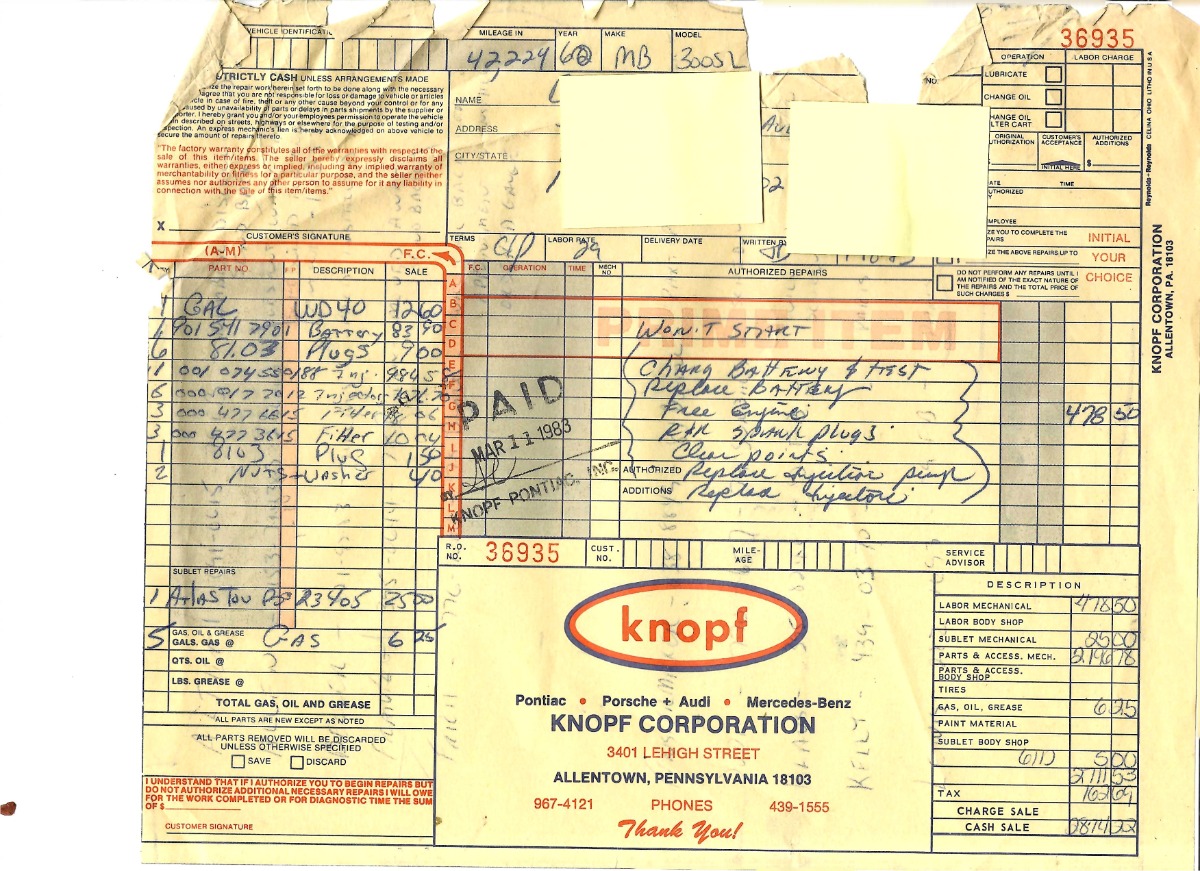 36935
VEHICLE IDENTIFICATI MILEAGE IN YEAR MAKE MODEL
42229 62 MB 300SL
OPERATION LABOR CHARGE
LUBRICATE
CHANGE OIL
CHANGE OIL
LTER CART
ORIGINAL UTHORIZATION CUSTOMER'S ACCEPTANCE AUTHORIZED ADDITIONS
INITIAL HERE $
ATE TIME
UTHORIZED
Y
MPLOYEE
ZE YOU TO COMPLETE THE
PAIRS
IZE THE ABOVE REPAIRS UP TO
DO NOT PERFORM ANY REPAIRS UNTIL I
AM NOTIFIED OF THE EXACT NATURE OF
THE REPAIRS AND THE TOTAL PRICE OF
SUCH CHARGES $
INITIAL
YOUR
CHOICE
Reynolds + Reynolds CELINA OHIO LITHO IN U S A
KNOPF CORPORATION
ALLENTOWN, PA. 18103
STRICTLY CASH UNLESS ARRANGEMENTS MADE
ize the repair work herein set forth to be done along with the necessary
agree that you are not responsible for loss or damage to vehicle or articles
icle in case of fire, theft or any other cause beyond your control or for any
aused by unavailability of parts or delays in parts shipments by the supplier or
porter. I hereby grant you and/or your employees permission to operate the vehicle
n described on streets, highways or elsewhere for the purpose of testing and/or
spection. An express mechanic's lien is hereby acknowledged on above vehicle to
secure the amount of repairs thereto.
"The factory warranty constitutes all of the warranties with respect to the
sale of this item/items. The seller hereby expressly disclaims all
warranties, either express or implied, including any implied warranty of
merchantability or fitness for a particular purpose, and the seller neither
assumes nor authorizes any other person to assume for it any liability in
connection with the sale of this item/items."
X
CUSTOMER'S SIGNATURE
NAME
ADDRESS
CITY/STATE
NO.
TERMS LABOR RATE 29 DELIVERY DATE WRITTEN BY
(A-M) F.C.
PART NO. DESCRIPTION SALE
F.C. OPERATION TIME MECH NO AUTHORIZED REPAIRS
A
B
C
D
E
F
G
H
I
J
K
L
M
1 GAL WD40 12 60
1 901 541 7901 Battery 83 90
6 81.03 Plugs 9 00
11 001 074 5501 Inj.
6 Injector
3 000 477 6615 Filter
3 000 477 3615 Filter 10 04
1 8103 Plug 1 50
2 NUTS + Washer 40
PRIMA ITEM
WON'T START
CHARG BATTERY & TEST
Replace BATTERY
Free Engine
R&R SPARK PLUGS
Clean points
Replace Injection pump
Replace Injectors
478 50
AUTHORIZED
ADDITIONS
PAID
MAR 11 1983
KNOPF PONTIAC, INC.
R.O. NO. 36935 CUST. NO. MILE-AGE SERVICE ADVISOR
SUBLET REPAIRS
1 ATLAS 23905 25 00
5 GAS, OIL & GREASE
GALS. GAS @ GAS 6 25
QTS. OIL @
LBS. GREASE @
TOTAL GAS, OIL AND GREASE
ALL PARTS ARE NEW EXCEPT AS NOTED
ALL PARTS REMOVED WILL BE DISCARDED
UNLESS OTHERWISE SPECIFIED
SAVE DISCARD
I UNDERSTAND THAT IF I AUTHORIZE YOU TO BEGIN REPAIRS BUT
DO NOT AUTHORIZE ADDITIONAL NECESSARY REPAIRS I WILL OWE
FOR THE WORK COMPLETED OR FOR DIAGNOSTIC TIME THE SUM
OF $
CUSTOMER SIGNATURE
knopf
Pontiac • Porsche + Audi • Mercedes-Benz
KNOPF CORPORATION
3401 LEHIGH STREET
ALLENTOWN, PENNSYLVANIA 18103
967-4121 PHONES 439-1555
Thank You!
DESCRIPTION
LABOR MECHANICAL 478 50
LABOR BODY SHOP
SUBLET MECHANICAL 25 00
PARTS & ACCESS. MECH. 2196 78
PARTS & ACCESS. BODY SHOP
TIRES
GAS, OIL, GREASE 6 25
PAINT MATERIAL
SUBLET BODY SHOP
611) 5 00
2711 53
TAX 162 69
CHARGE SALE
CASH SALE 2874 22